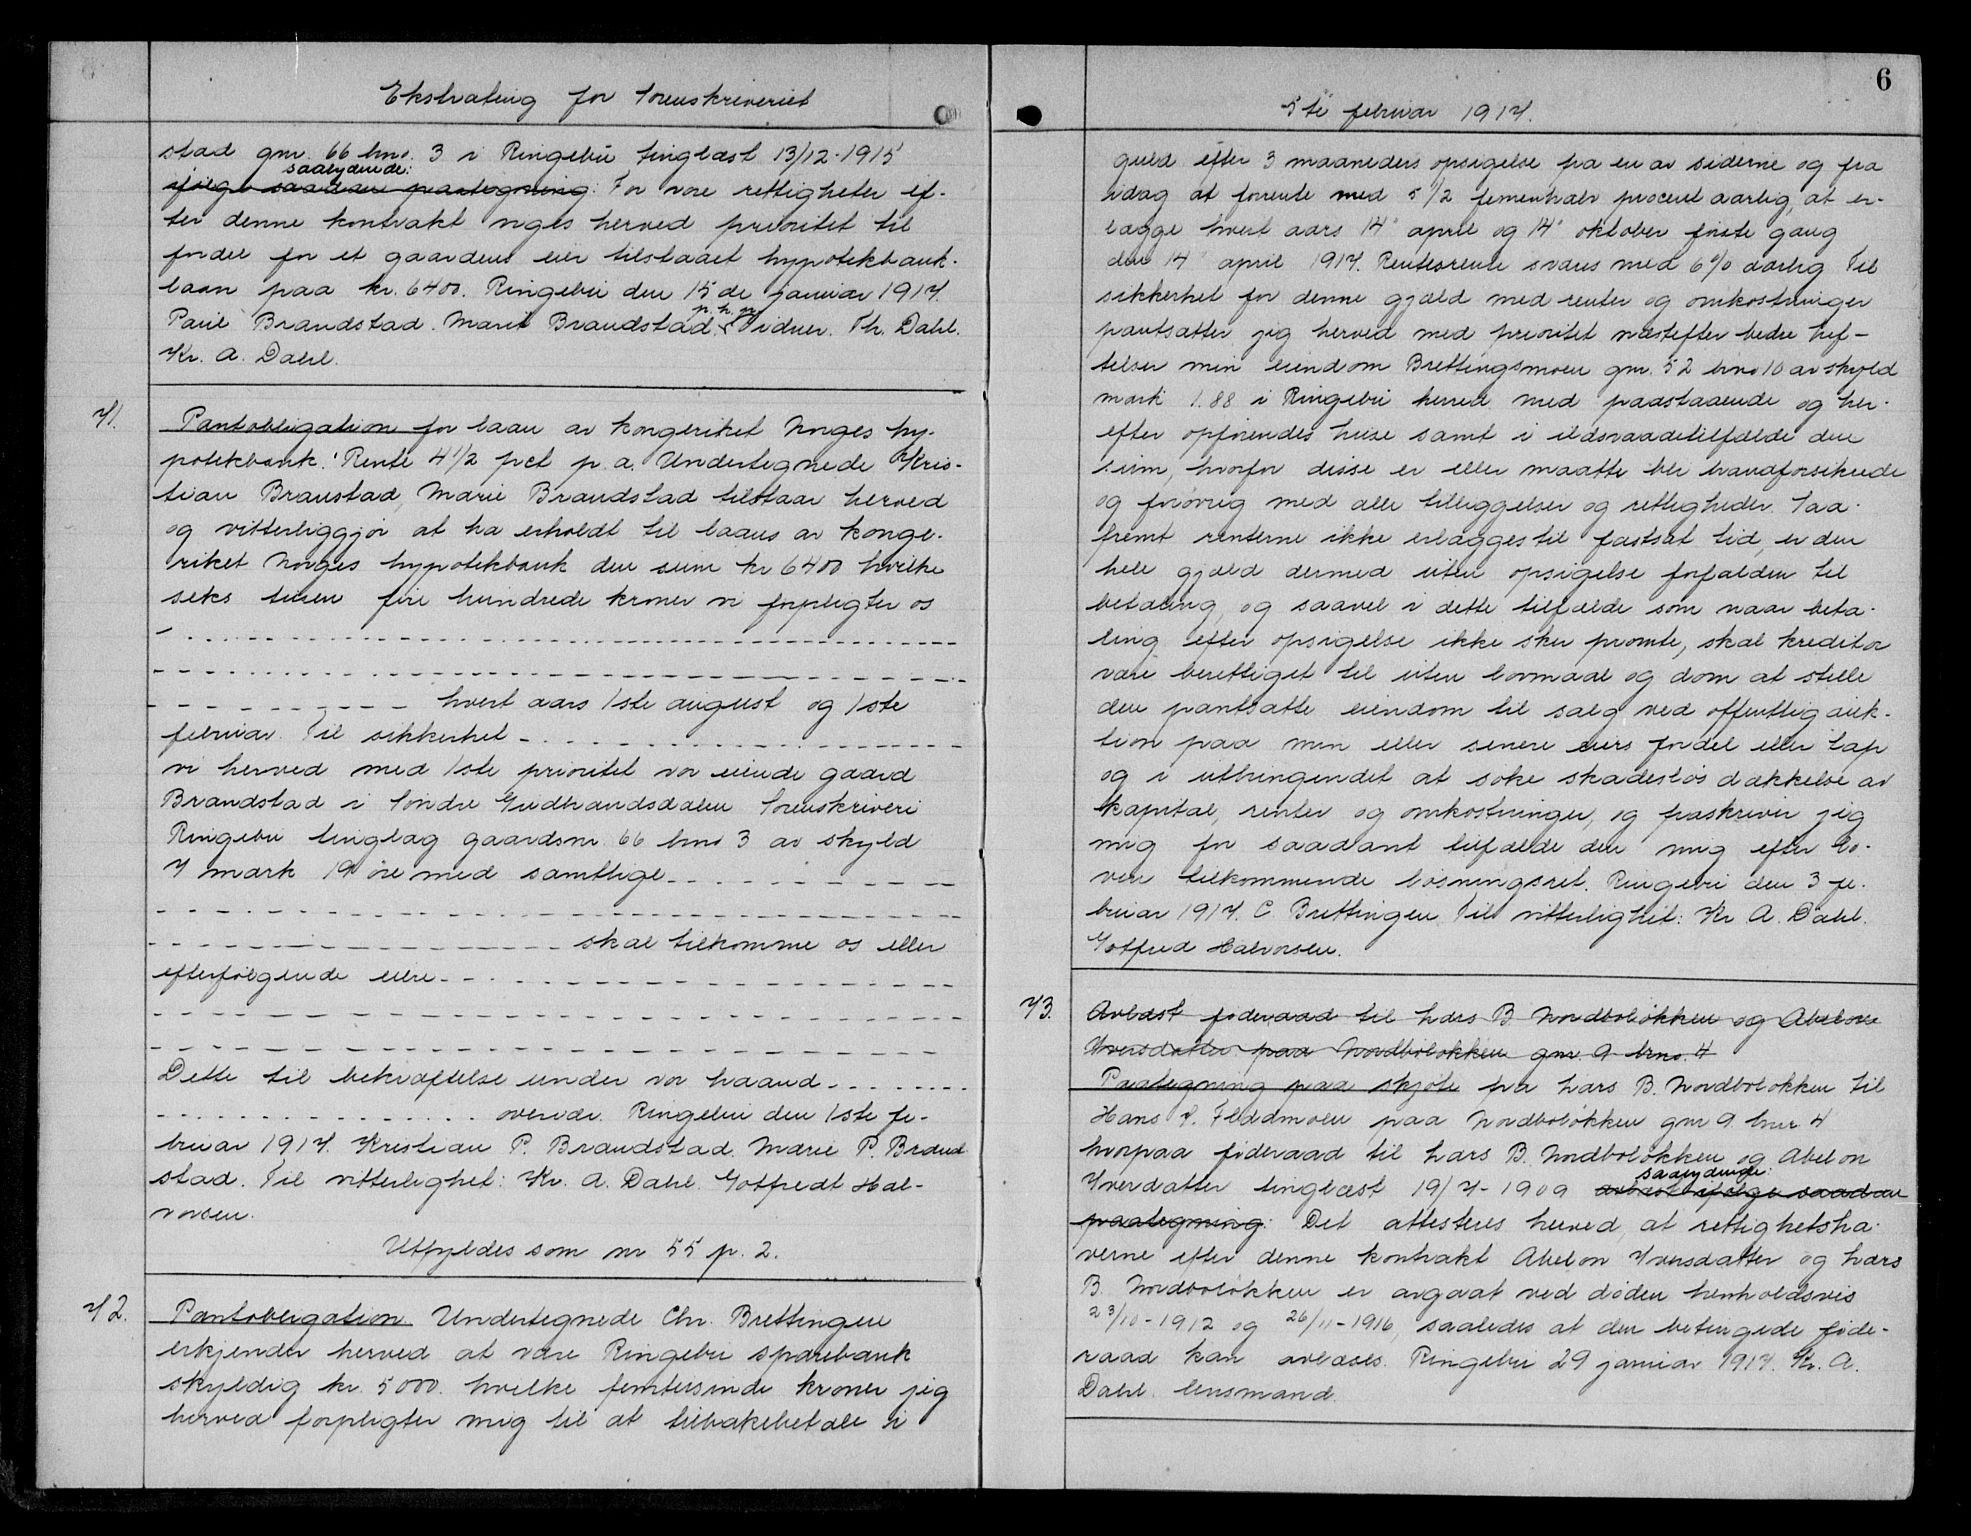 Ekstrating for sorenskriveriet
stad gnr. 66 bno. 3 i Ringebu tinglæst 13/12-1915
saalydende:
ifølge saadan paategning: For vore rettigheter ef-
ter denne kontrakt viges herved prioritet til
fordel for et gaardens eier tilstaaet hypotekbank-
laan paa kr. 6400. Ringebu den 15de januar 1917.
p. h. p.
Paul Brandstad. Marit Brandstad Vidner. Th. Dahl.
Kr. A. Dahl.
71. Pantobligation for laan av kongeriket Norges hy-
potekbank. Rente 4 1/2 pct p. a. Undertegnede Kris-
tian Branstad, Marie Brandstad tilstaar herved
og vitterliggjør at ha erholdt til laans av konge-
riket Norges hypotekbank den sum kr 6400 hvilke
seks tusen fire hundrede kroner vi forpligter os
hvert aars 1ste august og 1ste
februar. Til sikkerhet
vi herved med 1ste prioritet vor eiende gaard
Brandstad i Søndre Gudbrandsdalen Sorenskriveri
Ringebu tinglag gaardsnr. 66 bno 3 av skyld
7 mark 19 øre med samtlige
skal tilkomme os eller
efterfølgende eiere
Dette til bekræftelse under vor haand
overvær. Ringebu den 1ste fe-
bruar 1917. Kristian P. Brandstad. Marie P. Brand
stad. Til vitterlighet: Kr. A. Dahl. Gotfredt Hal-
vorsen.
Utfyldes som nr 55 p. 2.
72. Pantobligation Undertegnede Chr. Brettingen
erkjender herved at være Ringebu sparebank
skyldig kr. 5000. hvilke femtusinde kroner jeg
herved forpligter mig til at tilbakebetale i
6
5te februar 1917.
guld efter 3 maaneders opsigelse fra en av siderne og fra
idag at forrente med 5 1/2 femenhalv procent aarlig, at er-
lægge hvert aars 14' april og 14' oktober første gang
den 14' april 1917. Rentesrente svares med 6% aarlig. Til
sikkerhet for denne gjæld med renter og omkostninger
pantsætter jeg herved med prioritet næstefter bedre hef-
telser min eiendom Brettingsmoen gnr. 52 bno 10 av skyld
mark 1.88 i Ringebu herred med paastaaende og her-
efter opførendes huse samt i ildsvaadetilfælde den
sum, hvorfor disse er eller maatte bli brandforsikrede
og forøvrig med alle tilliggelser og rettigheder. Saa-
fremt renterne ikke erlægges til fastsat tid, er den
hele gjæld dermed uten opsigelse forfalden til
betaling, og saavel i dette tilfælde som naar beta-
ling efter opsigelse ikke sker promte, skal kreditor
være berettiget til uten lovmaal og dom at stille
den pantsatte eiendom til salg ved offentlig auk-
tion paa min eller senere eiers fordel eller tap
og i utbringendet at søke skadesløs dækkelse av
kapital, renter og omkostninger, og fraskriver jeg
mig for saadant tilfælde den mig efter lo-
ven tilkommende løsningsret. Ringebu den 3 fe-
bruar 1917. C. Brettingen. Til vitterlighet: Kr A. Dahl.
Gotfred Halvorsen.
73. Avlæst føderaad til Lars B. Nordboløkken og Abelone
Iversdatter paa Nordboløkken gnr. 9 brno. 4
Paategning paa skjøte fra Lars B. Nordboløkken til
Hans P. Flodmoen paa Nordboløkken gnr 9 bnr. 4
hvorpaa føderaad til Lars B. Nordboløkken og Abelon
saalydende:
Iverdatter tinglæst 19/7-1909 avlæst ifølge saadan
paategning: Det attesteres herved, at rettighetsha-
verne efter denne kontrakt Abelon Iversdatter og Lars
B. Nordboløkken er avgaat ved døden henholdsvis
23/10-1912 og 26/11-1916, saaledes at den betingede føde-
raad kan avlæses. Ringebu 29 januar 1917. Kr. A.
Dahl. lensmand.